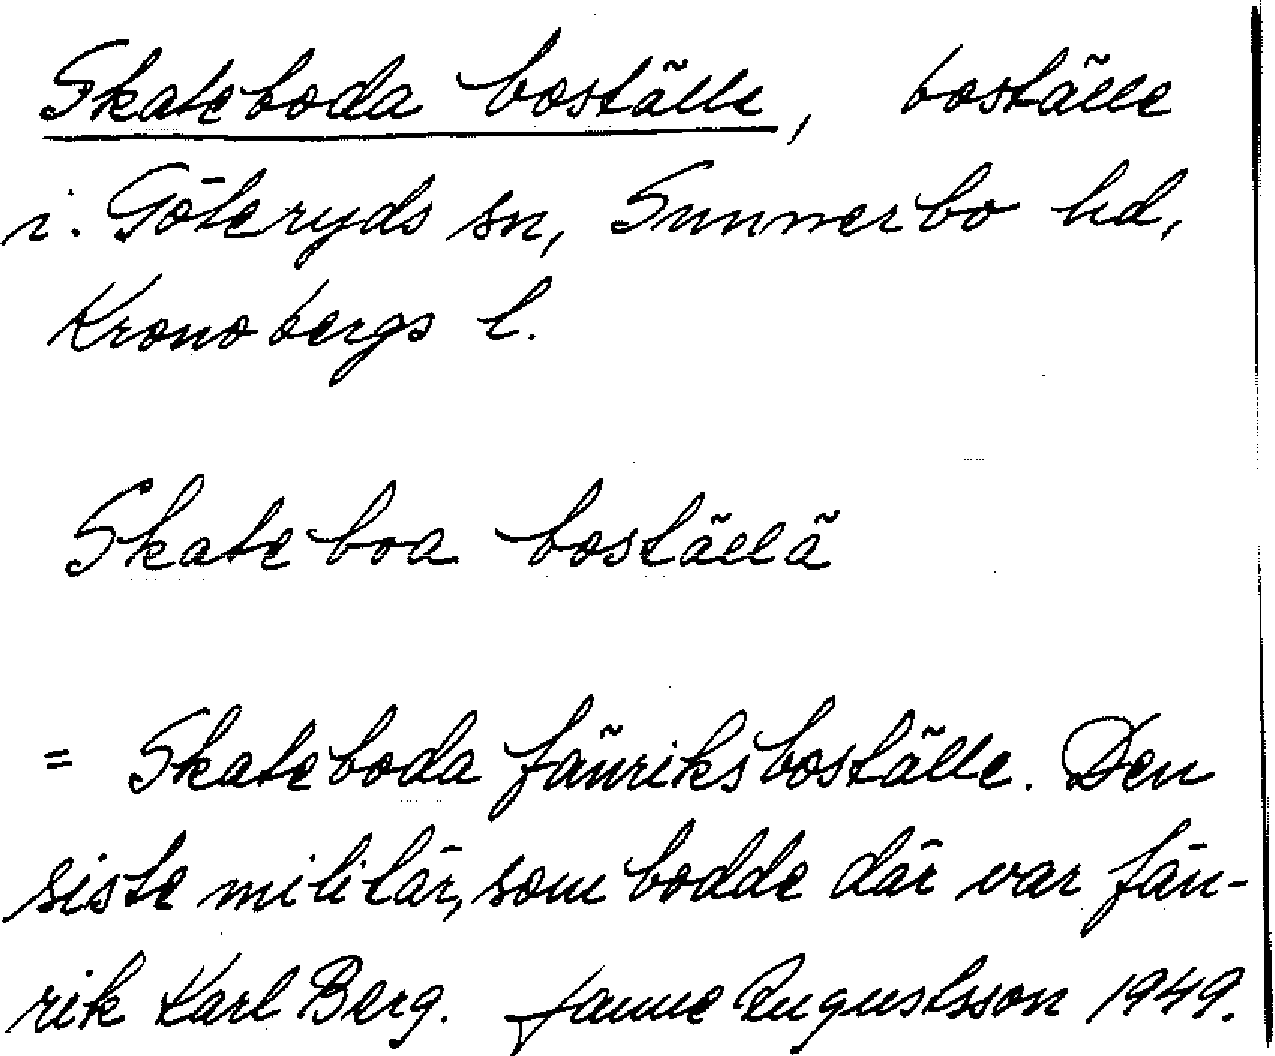 Skateboda boställe, boställe
i. Göteryds sn, Sunnerbo hd,
Kronobergs l.
Skateboa boställä
= Skateboda fänriksboställe. Den
siste militär, som bodde där var fän-
rik Karl Berg. Janne Augustsson 1949.